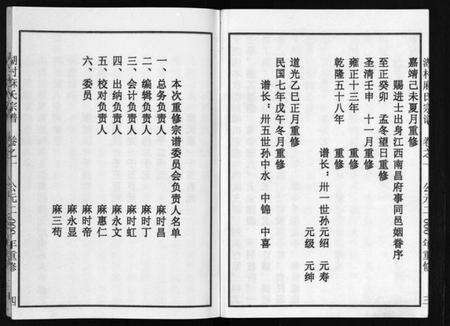 湖村麻氏宗谱 卷之一 公元二〇〇〇年重修 三
嘉靖己未夏月重修
赐进士出身江西南昌府事同邑姻眷序
至正癸亥 孟冬望日重修
圣清壬申 十一月重修
雍正十三年 重修
乾隆五十八年 重修
谱长：卅一世孙元绍 元寿
元级 元绅
道光乙巳正月重修
民国七年戊午冬月重修
谱长：卅五世孙中水 中锦 中喜
本次重修宗谱委员会负责人名单
一、总务负责人 麻时昌
二、编辑负责人 麻时丁
三、会计负责人 麻时虹
四、出纳负责人 麻永文
五、校对负责人 麻惠仁
六、委员 麻时帝
麻永显
麻三苟
湖村麻氏宗谱 卷之一 公元二〇〇〇年重修 四